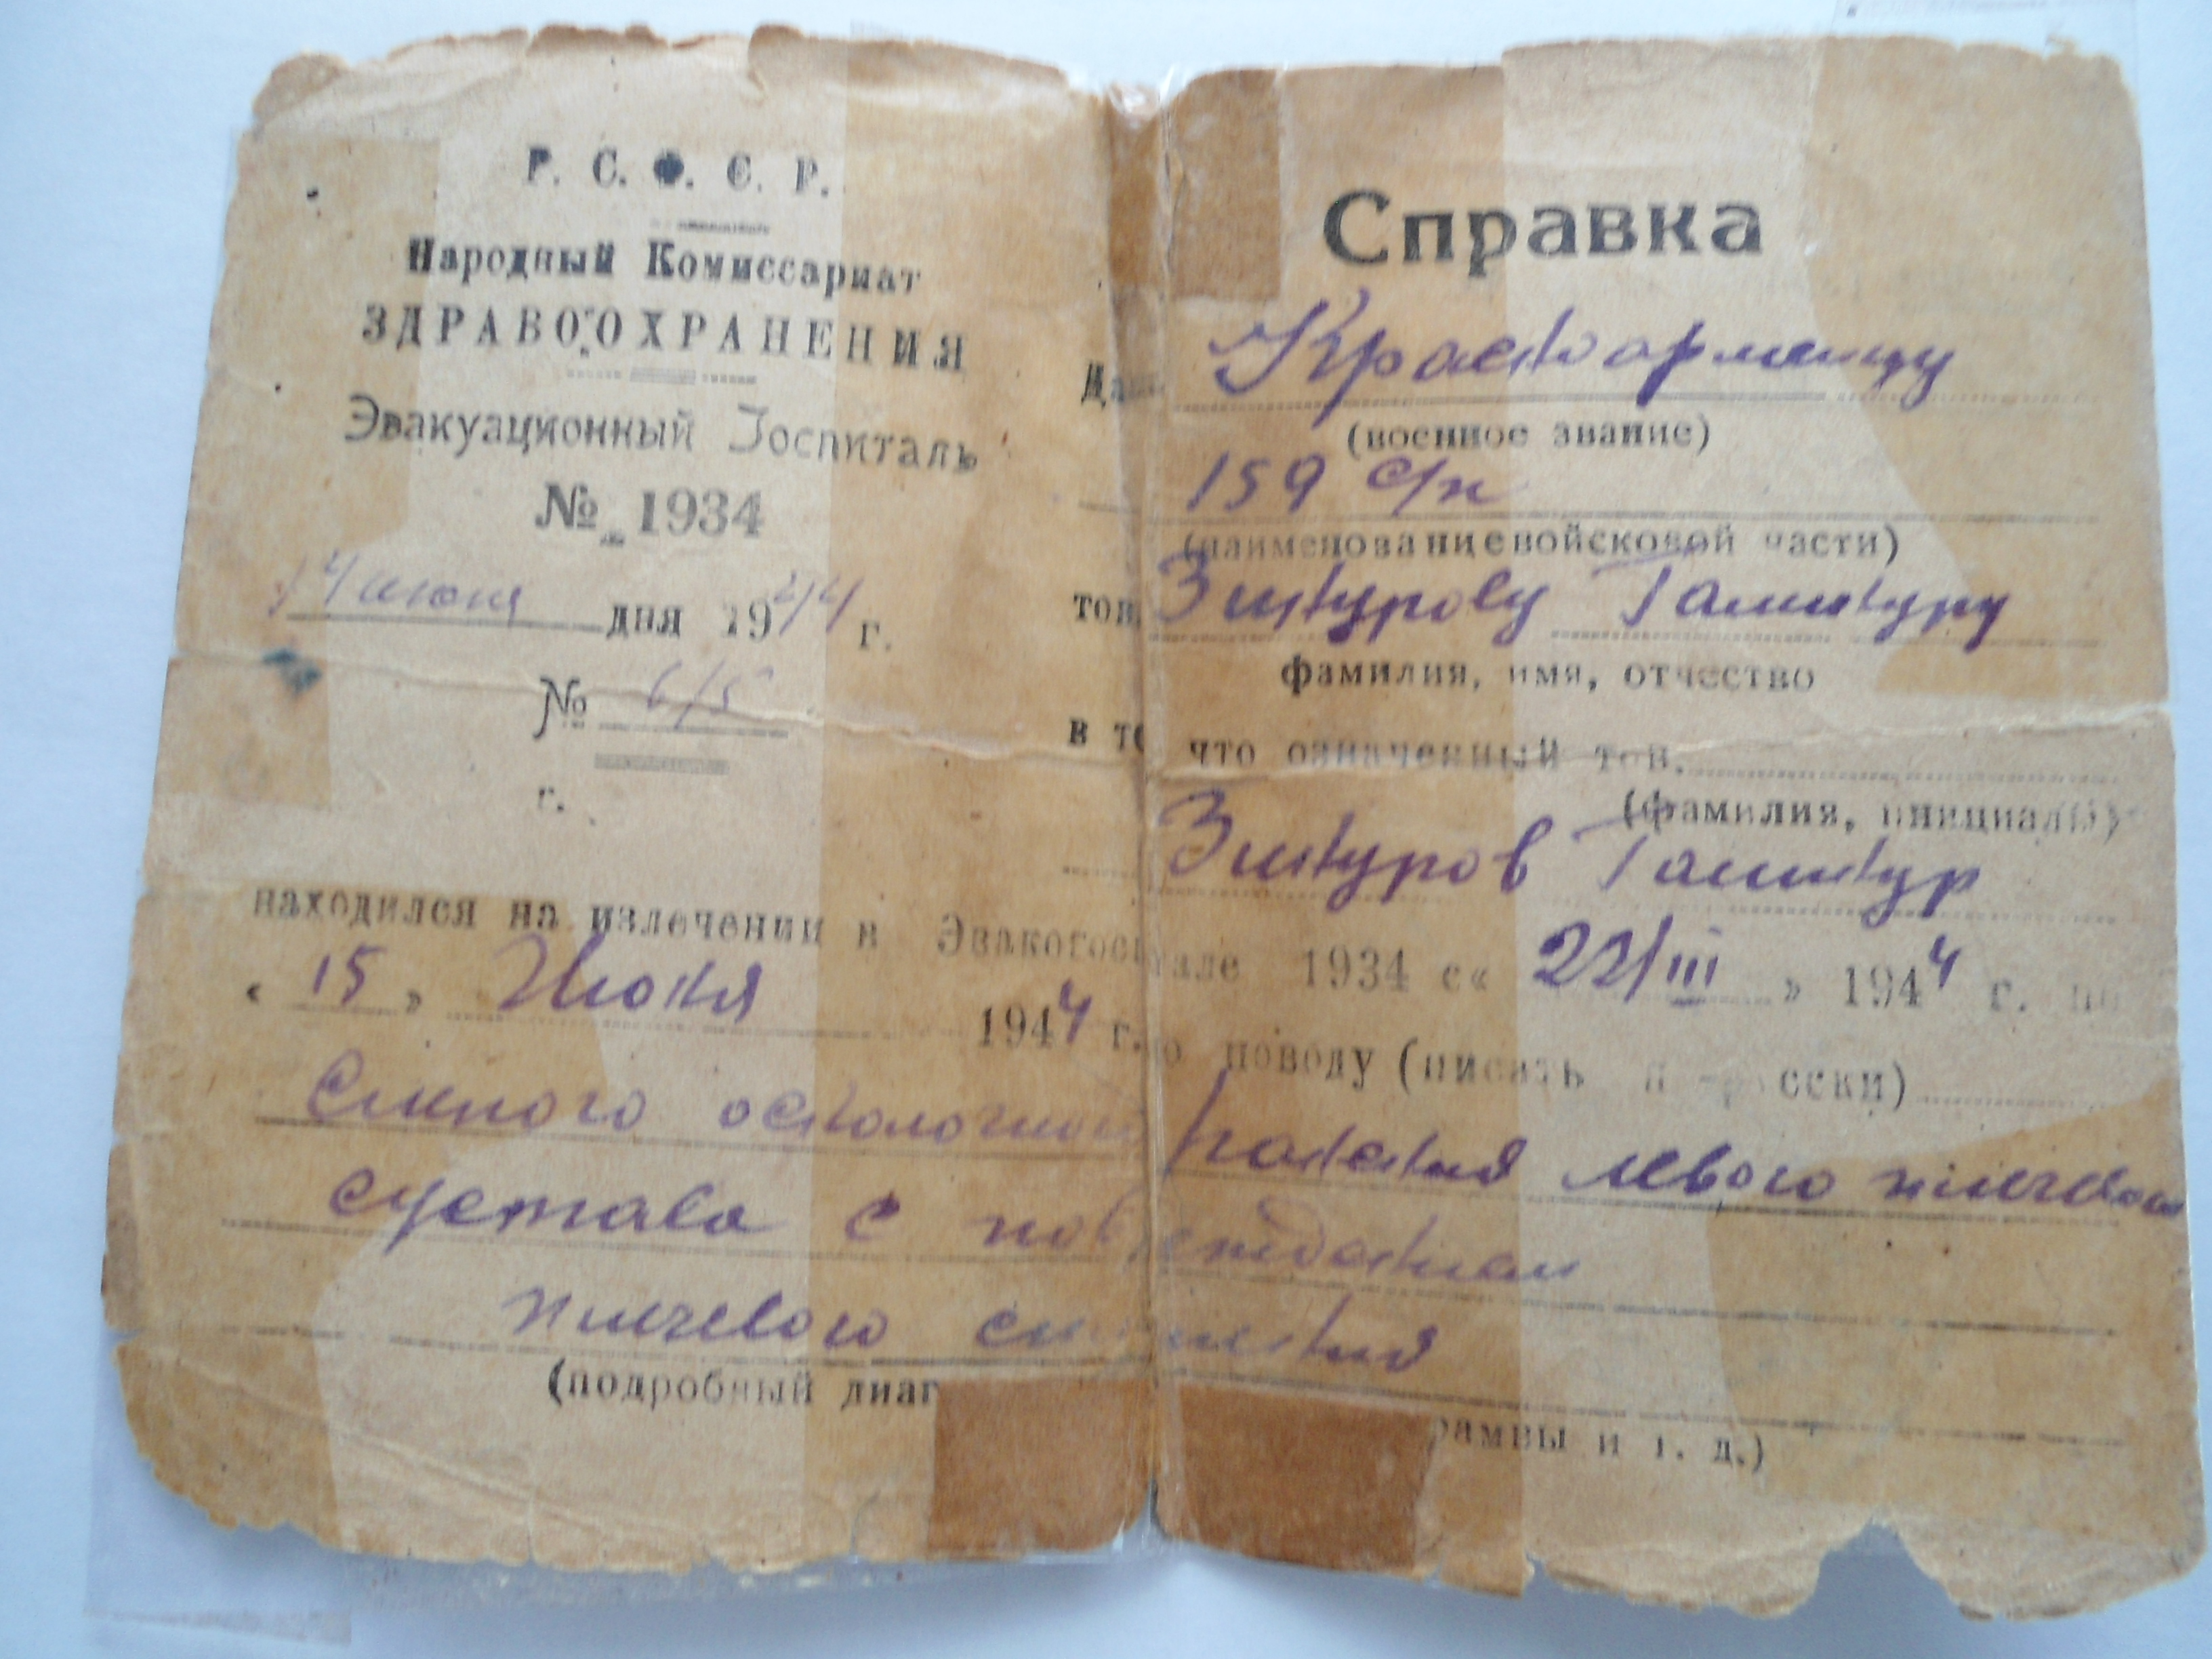 Р. С. Ф. С. Р.
Народный Комиссариат
ЗДРАВООХРАНЕНИЯ
Эвакуационный Госпиталь
№ 1934
14 июня дня 1944 г.
№ 6/5
г.
Справка
Красноармейцу
(военное звание)
159 с/п
(наименование войсковой части)
тов. Зинурову
фамилия, имя, отчество
в то что означенный тов.
(фамилия, инициалы)
Зинуров
находился на излечении в Эвакогоспитале 1934 с « 22/III » 1944 г. по
« 15 » Июня 1944 г. по поводу (писать по-русски)
слепого осколочного ранения левого плечевого
сустава с повреждением
плечевого сплетения
(подробный диаг рамвы и т. д.)